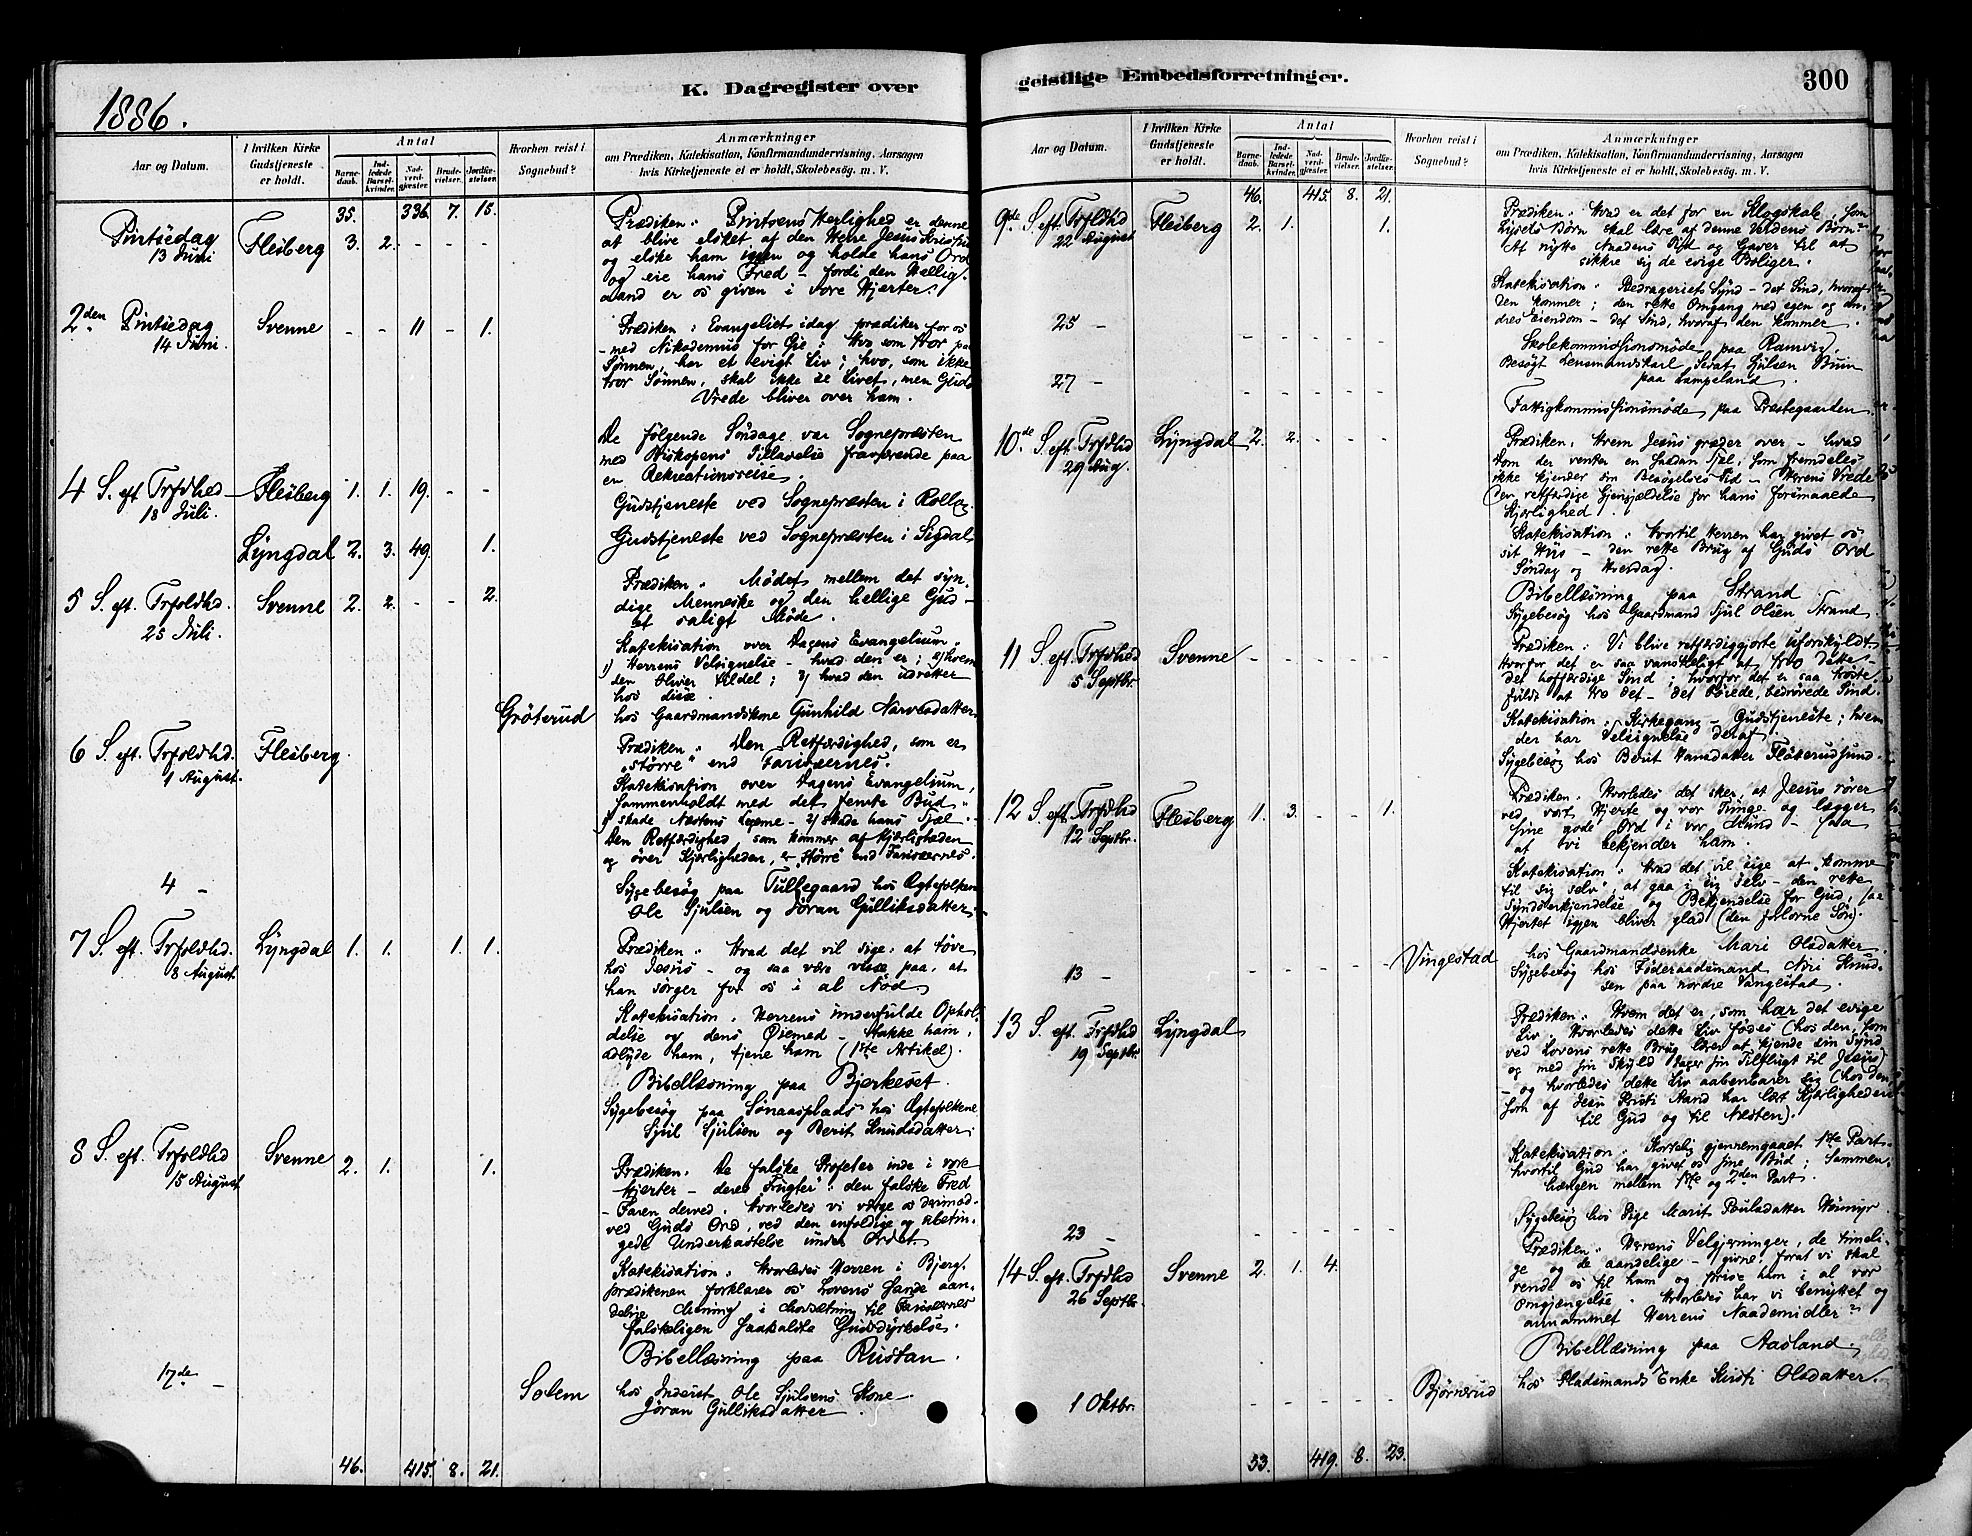 1886.
K. Dagregister over
Aar og Datum.
I hvilken Kirke Gudstjeneste er holdt.
Antal
Barnedaab.
Indledede Barselkvinder.
Nadverdgjester.
Brudevielser.
Jordfæstelser.
Hvorhen reist i Sognebud?
Anmærkninger
om Prædiken, Katekisation, Konfirmandundervisning, Aarsagen
hvis Kirketjeneste ei er holdt, Skolebesøg. m. V.
35. 336. 7. 15.
Pintsedag 13 Juni Flesberg 3. 2. - - -
Prædiken: Pintsens Herlighed er denne
at blive elsket af den Herre Jesus Kristus
og elske ham igjen og holde hans Ord
og eie hans Fred - fordi den Hellig-
aand er os given i vore Hjerter.
2den Pintsedag 14 Juni. Svenne - - 11 - 1.
Prædiken: Evangeliet idag prædiker for os
- med Nikodemus for Øie: Hvo som tror paa
Sønnen, har et evigt Liv; hvo, som ikke
tror Sønnen, skal ikke se Livet, men Guds
Vrede bliver over ham.
De følgende Søndage var Sognepræsten
med Biskopens Tilladelse fraværende paa
en Rekreationsreise.
4 S. eft. Trfdhed 18 Juli. Flesberg 1. 1. 19. - -
Gudstjeneste ved Sognepræsten i Rollag.
Lyngdal 2. 3. 49. 1.
Gudstjeneste ved Sognepræsten i Sigdal
5 S. eft. Trfoldhd. 25 Juli. Svenne 2. 2. - - 2.
Prædiken: Mødet mellem det syn-
dige Menneske og den hellige Gud -
et saligt Møde.
Katekisation over Dagens Evangelium:
1) Herrens Velsignelse - hvad den er; 2) hvem
den bliver tildel; 3) hvad den udretter
hos disse.
Gröterud hos Gaardmandskone Gunhild Narvesdatter
6 S. eft. Trfoldhd. 1 August. Flesberg.
Prædiken: Den Retfærdighed, som er
"større" end Farisæernes.
Katekisation over Dagens Evangelium,
sammenholdt med det femte Bud:
1) skade Næstens Legeme - 2) skade hans Sjæl.
Den Retfærdighed som kommer af Kjærligheden
og øver Kjærligheden, er "større" end Farisæernes.
4 -
Sygebesøg paa Tullegaard hos Ægtefolkene
Ole Sjulsen og Jøran Gulliksdatter.
7 S. eft. Trfoldhd. 8 August. Lyngdal 1. 1. 1. 1.
Prædiken: Hvad det vil sige: at tøve
hos Jesus - og saa være visse paa, at
han sørger for os i al Nød
Katekisation. Herrens underfulde Ophol-
delse og dens Øiemed - takke ham,
adlyde ham, tjene ham (1ste Artikel).
Bibellæsning paa Bjerkeset.
Sygebesøg paa Sønaasplads hos Ægtefolkene
Sjul Sjulsen og Berit Knudsdatter.
8 S. eft. Trfoldhd 15 August Svenne 2. 1. 1.
Prædiken: De falske Profeter inde i vore
Hjerter - deres "Frugter": den falske Fred
- Faren derved. Hvorledes vi vogte os derimod
ved Guds Ord, ved den enfoldige og ubetin-
gede Underkastelse under Ordet.
Katekisation: Hvorledes Herren i Bjerg-
prædikenen forklarer os Lovens sande aan-
delige Mening i Modsætning til Farisæernes
falskeligen saakaldte Gudsdyrkelse.
Bibellæsning paa Rustan.
17de - Solem
hos Inderst Ole Sjulsens Kone
Jøran Gulliksdatter.
46. 415. 8. 21.
geistlige Embedsforretninger.
300
Aar og Datum.
I hvilken Kirke Gudstjeneste er holdt.
Antal
Barnedaab.
Indledede Barselkvinder.
Nadverdgjester.
Brudevielser.
Jordfæstelser.
Hvorhen reist i Sognebud?
Anmærkninger
om Prædiken, Katekisation, Konfirmandundervisning, Aarsagen
hvis Kirketjeneste ei er holdt, Skolebesøg. m. V.
46. 415. 8. 21.
9de S. eft. Trfoldhd 22 August Flesberg 2. 1. 1.
Prædiken: Hvad er det for en Klogskab, som
Lysets Børn skal lære af denne Verdens Børn?
At nytte Naadens Tid og Gaver til at
sikkre sig de evige Boliger.
Katekisation: Bedrageriets Synd - det Sind, hvoraf
den kommer; den rette Omgang med egen og an-
dres Eiendom - det Sind, hvoraf den kommer.
25 - - - - - -
Skolekommissionsmøde paa Ramvig
Besøgt Lensmandskarl Sevat Sjulsen Bruin
paa Lampeland.
27 - - - - - -
Fattigkommissionsmøde paa Præstegaarden.
10de S. eft. Trfdhd 29 Aug. Lyngdal 2. 2. - - -
Prædiken: Hvem Jesus græder over - hvad
Dom der venter en saadan Sjel, som fremdeles
ikke kjender sin Besøgelses Tid - Herrens Vrede
(den retfærdige Gjengjældelse for hans forsmaaede
Kjærlighed.
Katekisation: Hvortil Herren har givet os
sit Hus - den rette Brug af Guds Ord
Søndag og Hverdag.
Bibellæsning paa Strand
Sygebesøg hos Gaardmand Sjul Olsen Strand
11 S. eft. Trfdhed 5 Septbr. Svenne - - - - -
Prædiken: Vi blive retfærdiggjorte uforskyldt.
Hvorfor det er saa vanskeligt at tro dette -
det hoffærdige Sind; hvorfor det er saa trøste-
fuldt at tro det - det bøiede, bedrøvede Sind.
Katekisation: Kirkegang - Gudstjeneste; hvem
der har Velsignelse deraf.
Sygebesøg hos Berit Hansdatter Fløterudsund.
12 S. eft. Trfdhd 12 Septbr. Flesberg 1. 3. - - 1.
Prædiken: Hvorledes det sker, at Jesus rører
ved vort Hjerte og vor Tunge og lægger
sine gode Ord i vor Mund - saa
at vi bekjender ham.
Katekisation: Hvad det vil sige at "komme
til sig selv", at gaa i sig selv - den rette
Syndserkjendelse og Bekjendelse for Gud, saa
Hjertet igjen bliver glad (den forlorne Søn).
Vingestad hos Gaardmandsenke Mari Olsdatter
13 -
Sygebesøg hos Føderaadsmand Niri Knud-
sen paa nordre Vangestad.
13 S. eft. Trfdhd 19 Septbr. Lyngdal
Prædiken: Hvem det er, som har det evige
Liv. Hvorledes dette Liv fødes (hos den, som
ved Lovens rette Brug lærer at kjende sin Synd
og med sin Skyld tager sin Tilflugt til Jesus)
- og hvorledes dette Liv aabenbarer sig (hos den,
som af Jesu Kristi Aand har lært Kjærligheden
til Gud og til Næsten).
Katekisation: Kortelig gjennemgaaet 1ste Part.
hvortil Gud har givet os sine Bud; Sammen-
hængen mellem 1ste og 2den Part.
23 - - - - - -
Sygebesøg hos Pige Marit Poulsdatter
14 S. eft. Trfdhd 26 Septbr. Svenne 2. 1. 4.
Prædiken: Herrens Velgjerninger, de timeli-
ge og de aandelige - givne, forat vi skal
vende os til ham og prise ham i al vor
Omgjængelse. Hvorledes har vi benyttet og
annammet Herrens Naademidler?
Bibellæsning paa Aasland
1 Oktbr. - - - - - Bjørnerud hos Pladsmands Enke Kirsti Olsdatter
53. 419. 8. 23.